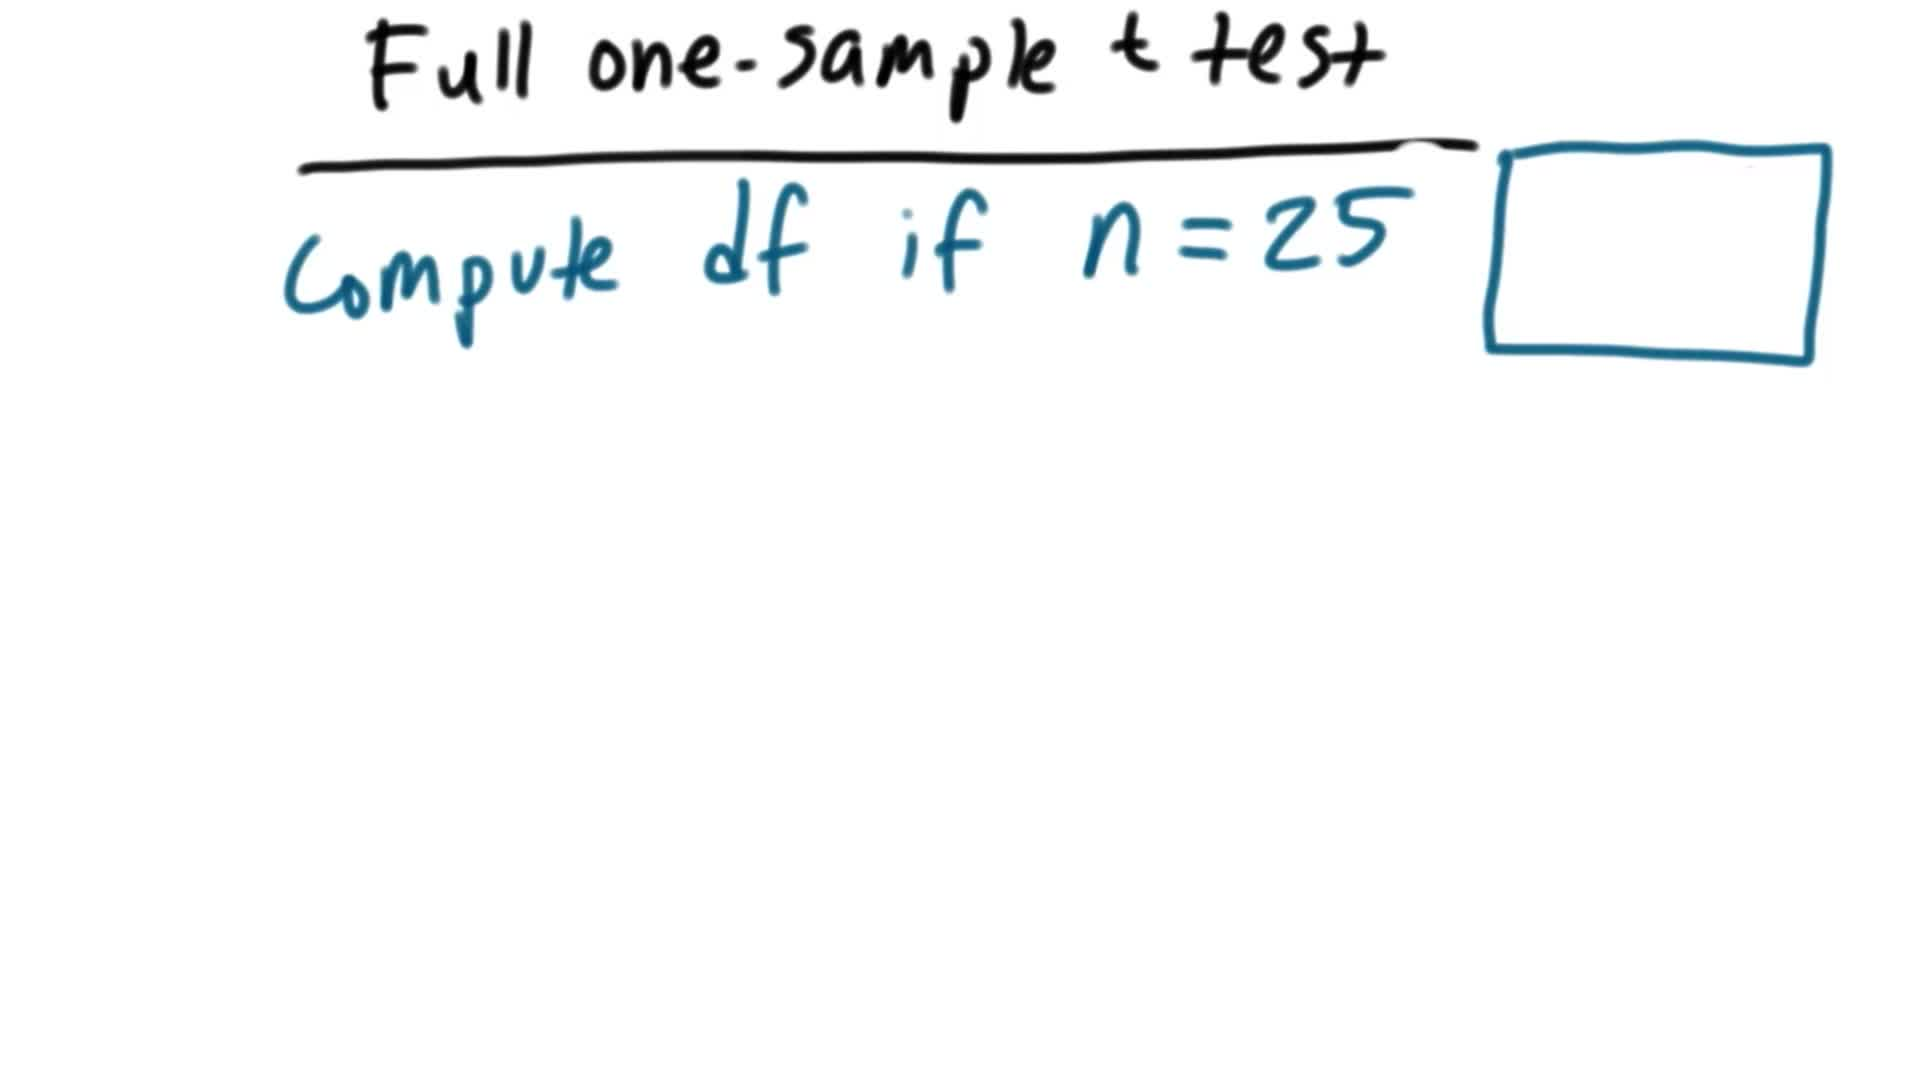 Full one-sample t test
Compute df if n = 25